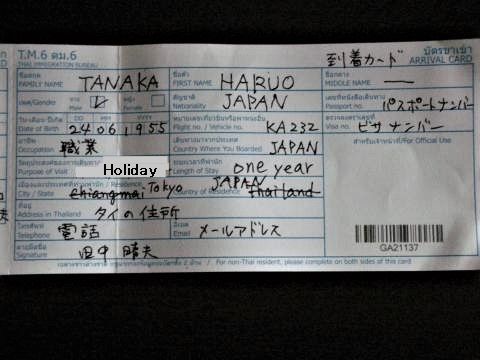 T.M.6 ตม.6
THAI IMMIGRATION BUREAU
到着カード
บัตรขาเข้า
ARRIVAL CARD
ชื่อสกุล
FAMILY NAME TANAKA
ชื่อตัว
FIRST NAME HARUO
ชื่อกลาง
MIDDLE NAME —
เพศ/Gender ชาย Male หญิง Female
สัญชาติ
Nationality JAPAN
เลขที่หนังสือเดินทาง
Passport no. パスポートナンバー
วัน-เดือน-ปีเกิด
DD MM YYYY
Date of Birth 24 06 1955
หมายเลขเที่ยวบินหรือพาหนะอื่น
Flight no./Vehicle no. KA232
ตรวจลงตราเลขที่
Visa no. ビザナンバー
อาชีพ
Occupation 職業
เดินทางมาจากประเทศ
Country Where You Boarded JAPAN
สำหรับเจ้าหน้าที่/For Official Use
Purpose of Visit Holiday
Length of Stay one year
City / State Chiangmai Tokyo
Country of Residence JAPAN Thailand
ที่อยู่
Address in Thailand タイの住所
โทรศัพท์
Telephone 電話
อีเมล
Email メールアドレス
ลายมือชื่อ
Signature 田中 晴夫
GA21137
For non-Thai resident, please complete on both sides of this card